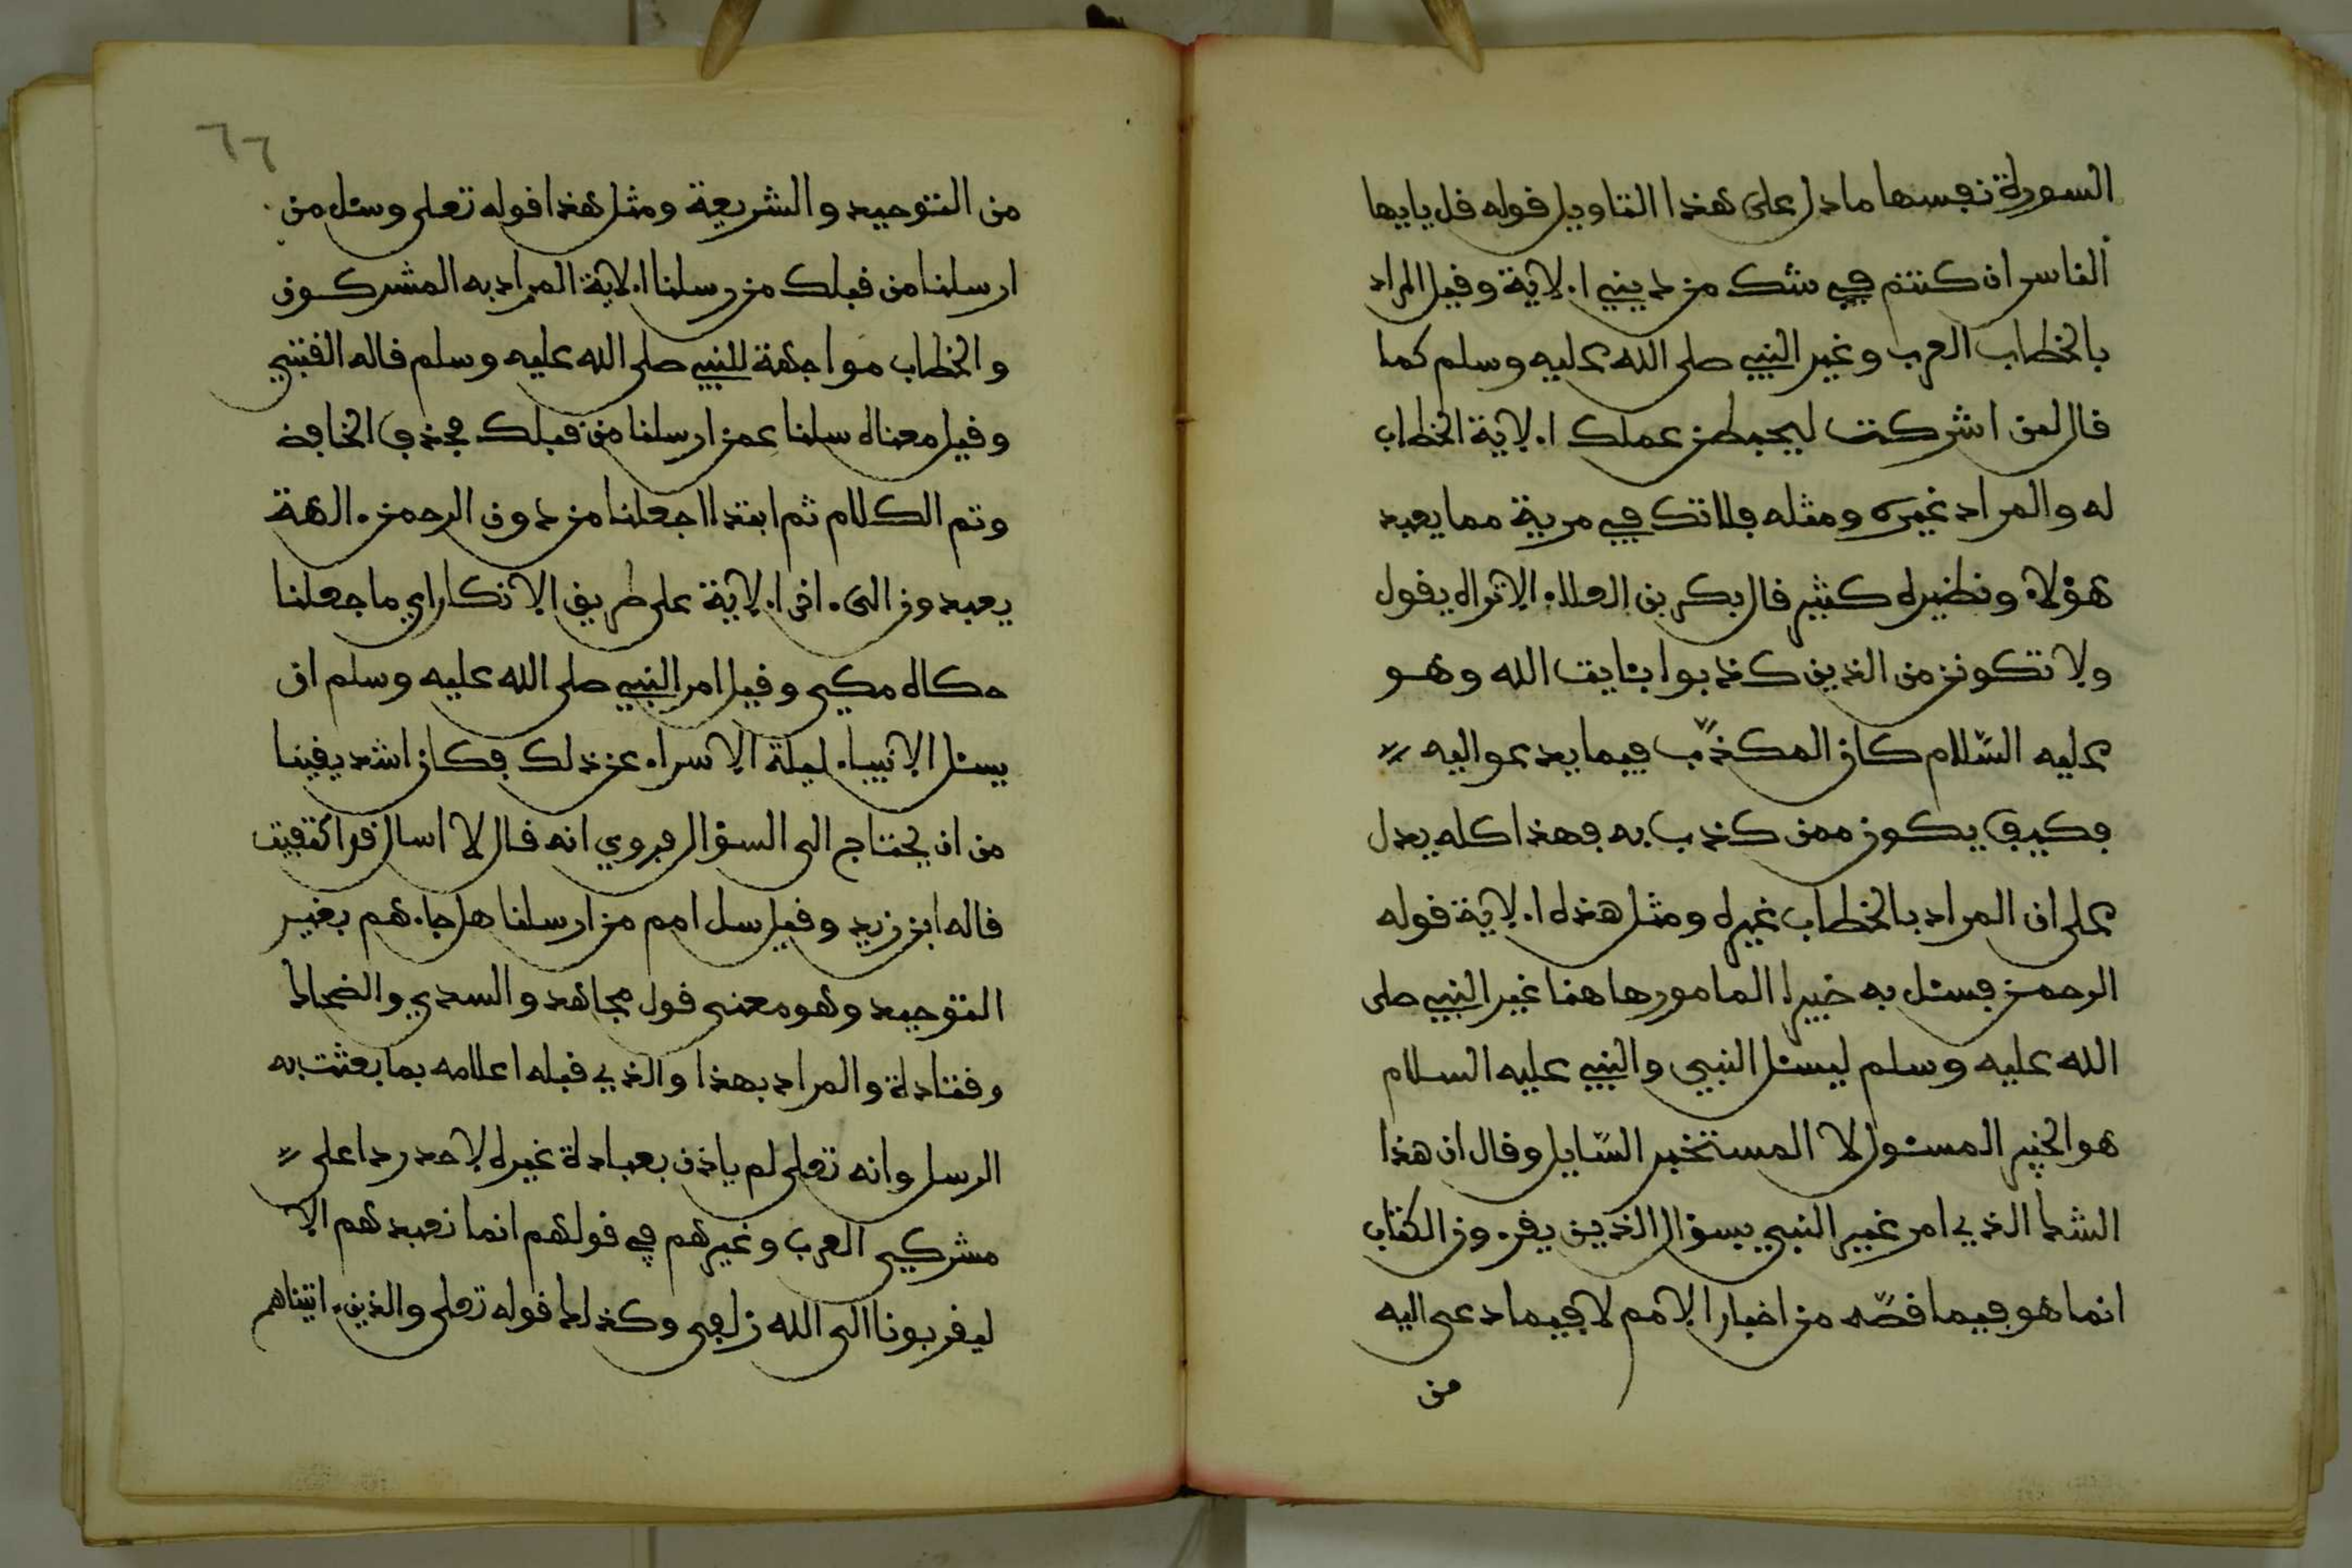 السورة نفسها ما دل على هذا التاويل قوله قل يايها
الناس ان كنتم في شك من ديني الاية وقيل المراد
بالخطاب العرب وغير النبي صلى الله عليه وسلم كما
قال لئن اشركت ليحبطن عملك الاية الخطاب
له والمراد غيره ومثله فلا تك في مرية مما يعبد
هؤلاء ونظيره كثير قال بكر بن العلاء الا تراه يقول
ولا تكونن من الذين كذبوا بئايت الله وهو
عليه السّلام كان المكذّب فيما يدعو اليه
فكيف يكون ممن كذب به فهذا كله يدل
على ان المراد بالخطاب غيره ومثل هذه الاية قوله
الرحمن فسئل به خبيرا المامور هاهنا غير النبي صلى
الله عليه وسلم ليسئل النبي والنبي عليه السلام
هو الخبير المسئول لا المستخبر السّايل وقال ان هذا
الشك الذي امر غير النبي بسؤال الذين يقرءون الكتاب
انما هو فيما قصّه من اخبار الامم لا فيما دعى اليه
من
٦٦
من التوحيد والشريعة ومثل هذا قوله تعلى وسئل من
ارسلنا من قبلك من رسلنا الاية المراد به المشركون
والخطاب مواجهة للنبي صلى الله عليه وسلم قاله القتبي
وقيل معناه سلنا عمن ارسلنا من قبلك فحذف الخافض
وتم الكلام ثم ابتدا اجعلنا من دون الرحمن ءالهة
يعبدون الىءاخر الاية على طريق الانكار اي ما جعلنا
حكاه مكي وقيل امر النبي صلى الله عليه وسلم ان
يسئل الانبياء ليلة الاسراء عن ذلك فكان اشد يقينا
من ان يحتاج الى السؤال فروي انه قال لا اسال قد اكتفيت
قاله ابن زيد وقيل سل امم من ارسلنا هل جاءهم بغير
التوحيد وهو معنى قول مجاهد والسدي والضحاك
وقتادة والمراد بهذا والذي قبله اعلامه بما بعثت به
الرسل وانه تعلى لم ياذن بعبادة غيره لاحد ردا على
مشركي العرب وغيرهم في قولهم انما نعبدهم الا
ليقربونا الى الله زلفى وكذلك قوله تعلى والذين ءاتيناهم